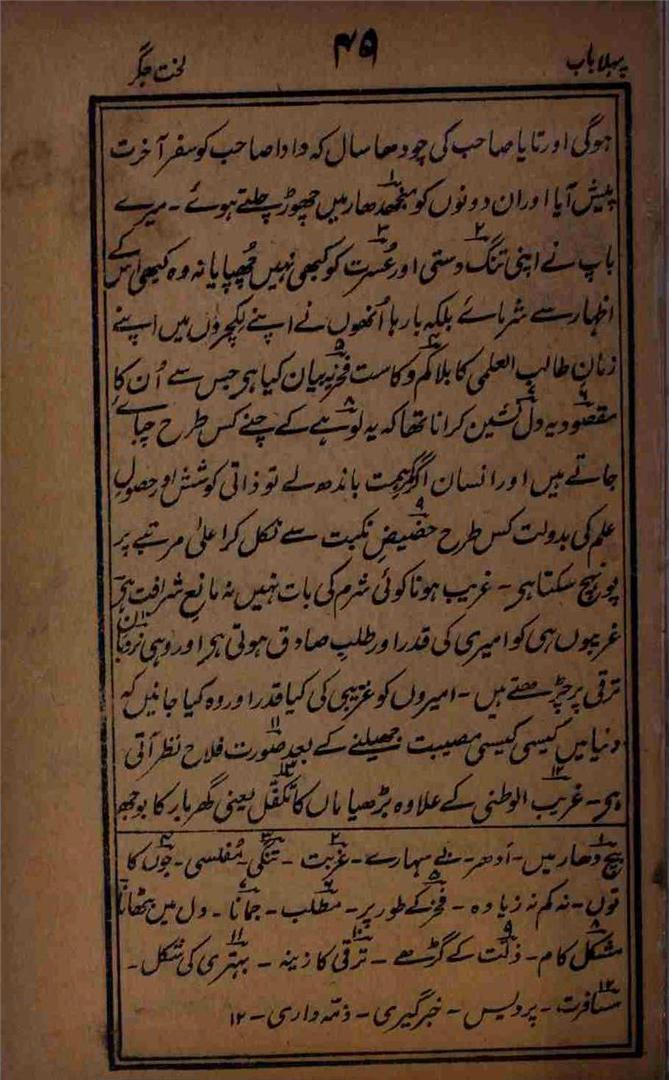 پہلا باب
۴۵
لخت جگر
ہوگی اور تایا صاحب کی چودھا سال کہ دادا صاحب کو سفر آخرت
پیش آیا اور ان دونوں کو منجھدھار میں چھوڑ چلتے ہوئے ۔ میرے
باپ نے اپنی تنگ دستی اور عُسرت کو کبھی نہیں چُھپایا نہ وہ کبھی اس کے
اظہار سے شرمائے بلکہ بارہا اُنھوں نے اپنے لکچروں میں اپنے
زمانِ طالب العلمی کا بلا کم و کاست فخریہ بیان کیا ہی جس سے اُن کا
مقصود یہ دل نشین کرانا تھا کہ یہ لوہے کے چنے کس طرح چبائے
جاتے ہیں اور انسان اگر ہمت باندھ لے تو ذاتی کوشش اور حصولِ
علم کی بدولت کس طرح حضیضِ نکبت سے نکل کر اعلیٰ مرتبے پر
پونہچ سکتا ہی ۔ غریب ہونا کوئی شرم کی بات نہیں نہ مانعِ شرافت ہی
غریبوں ہی کو امیری کی قدر اور طلبِ صادق ہوتی ہی اور وہی نردبانِ
ترقی پر چڑھتے ہیں ۔ امیروں کو غریبی کی کیا قدر اور وہ کیا جانیں کہ
دنیا میں کیسی کیسی مصیبت جھیلنے کے بعد صورت فلاح نظر آتی
ہی ۔ غریب الوطنی کے علاوہ بڑھیا ماں کا تکفّل یعنی گھر بار کا بوجھ
۱ بیچ دھار میں ۔ اَدھر ۔ بے سہارے ۔ ۲ غربت ۔ ۳ تنگی ۔ مُفلسی ۔ ۴ جوں کا
توں ۔ نہ کم نہ زیادہ ۔ ۵ فخر کے طور پر ۔ ۶ مطلب ۔ ۷ جمانا ۔ دل میں بٹھانا
۸ مشکل کام ۔ ۹ ذلت کے گڑھے ۔ ۱۰ ترقی کا زینہ ۔ ۱۱ بہتری کی شکل ۔
۱۲ مسافرت ۔ پردیس ۔ خبرگیری ۔ ذمہ داری ۔ ۱۲